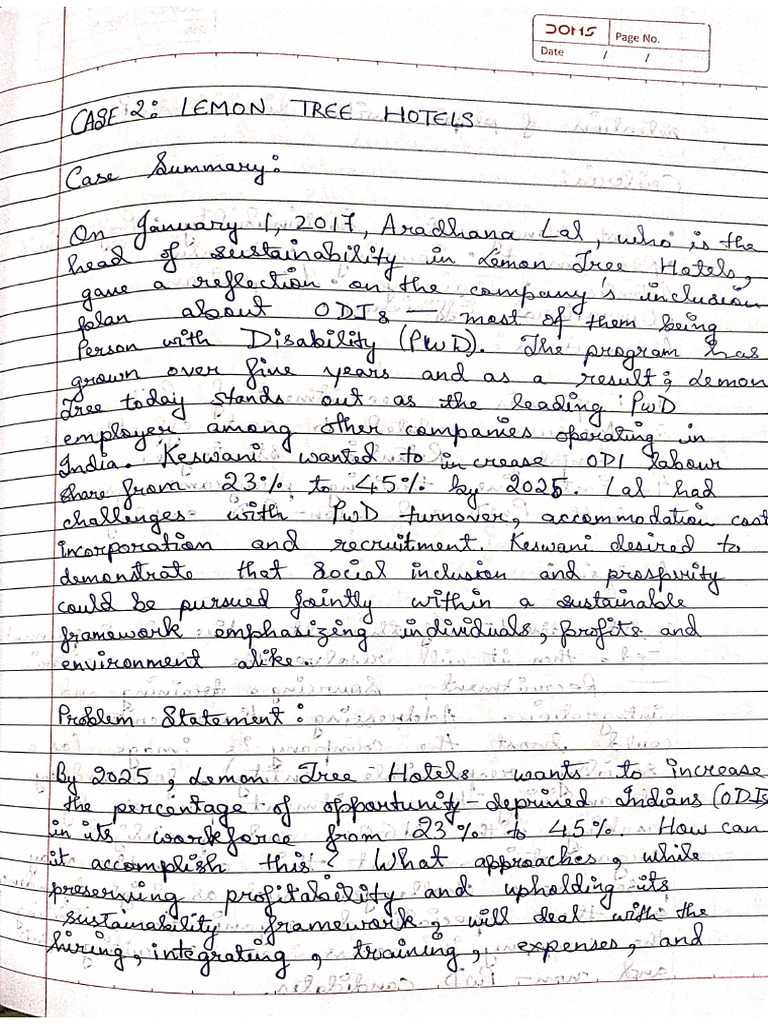 DOMS
Page No.
Date / /
CASE 2: LEMON TREE HOTELS
Case Summary:
On January 1, 2017, Aradhana Lal, who is the
head of sustainability in Lemon Tree Hotels,
gave a reflection on the company's inclusion
plan about ODIs — most of them being
Person with Disability (PwD). The program has
grown over five years and as a result, Lemon
Tree today stands out as the leading PwD
employer among other companies operating in
India. Keswani wanted to increase ODI labour
share from 23% to 45% by 2025. Lal had
challenges with PwD turnover, accommodation cost
incorporation and recruitment. Keswani desired to
demonstrate that social inclusion and prosperity
could be pursued jointly within a sustainable
framework emphasizing individuals, profits and
environment alike.
Problem Statement:
By 2025, Lemon Tree Hotels wants to increase
the percentage of opportunity-deprived Indians (ODIs
in its workforce from 23% to 45%. How can
it accomplish this? What approaches, while
preserving profitability and upholding its
sustainability framework, will deal with the
hiring, integrating, training, expenses, and